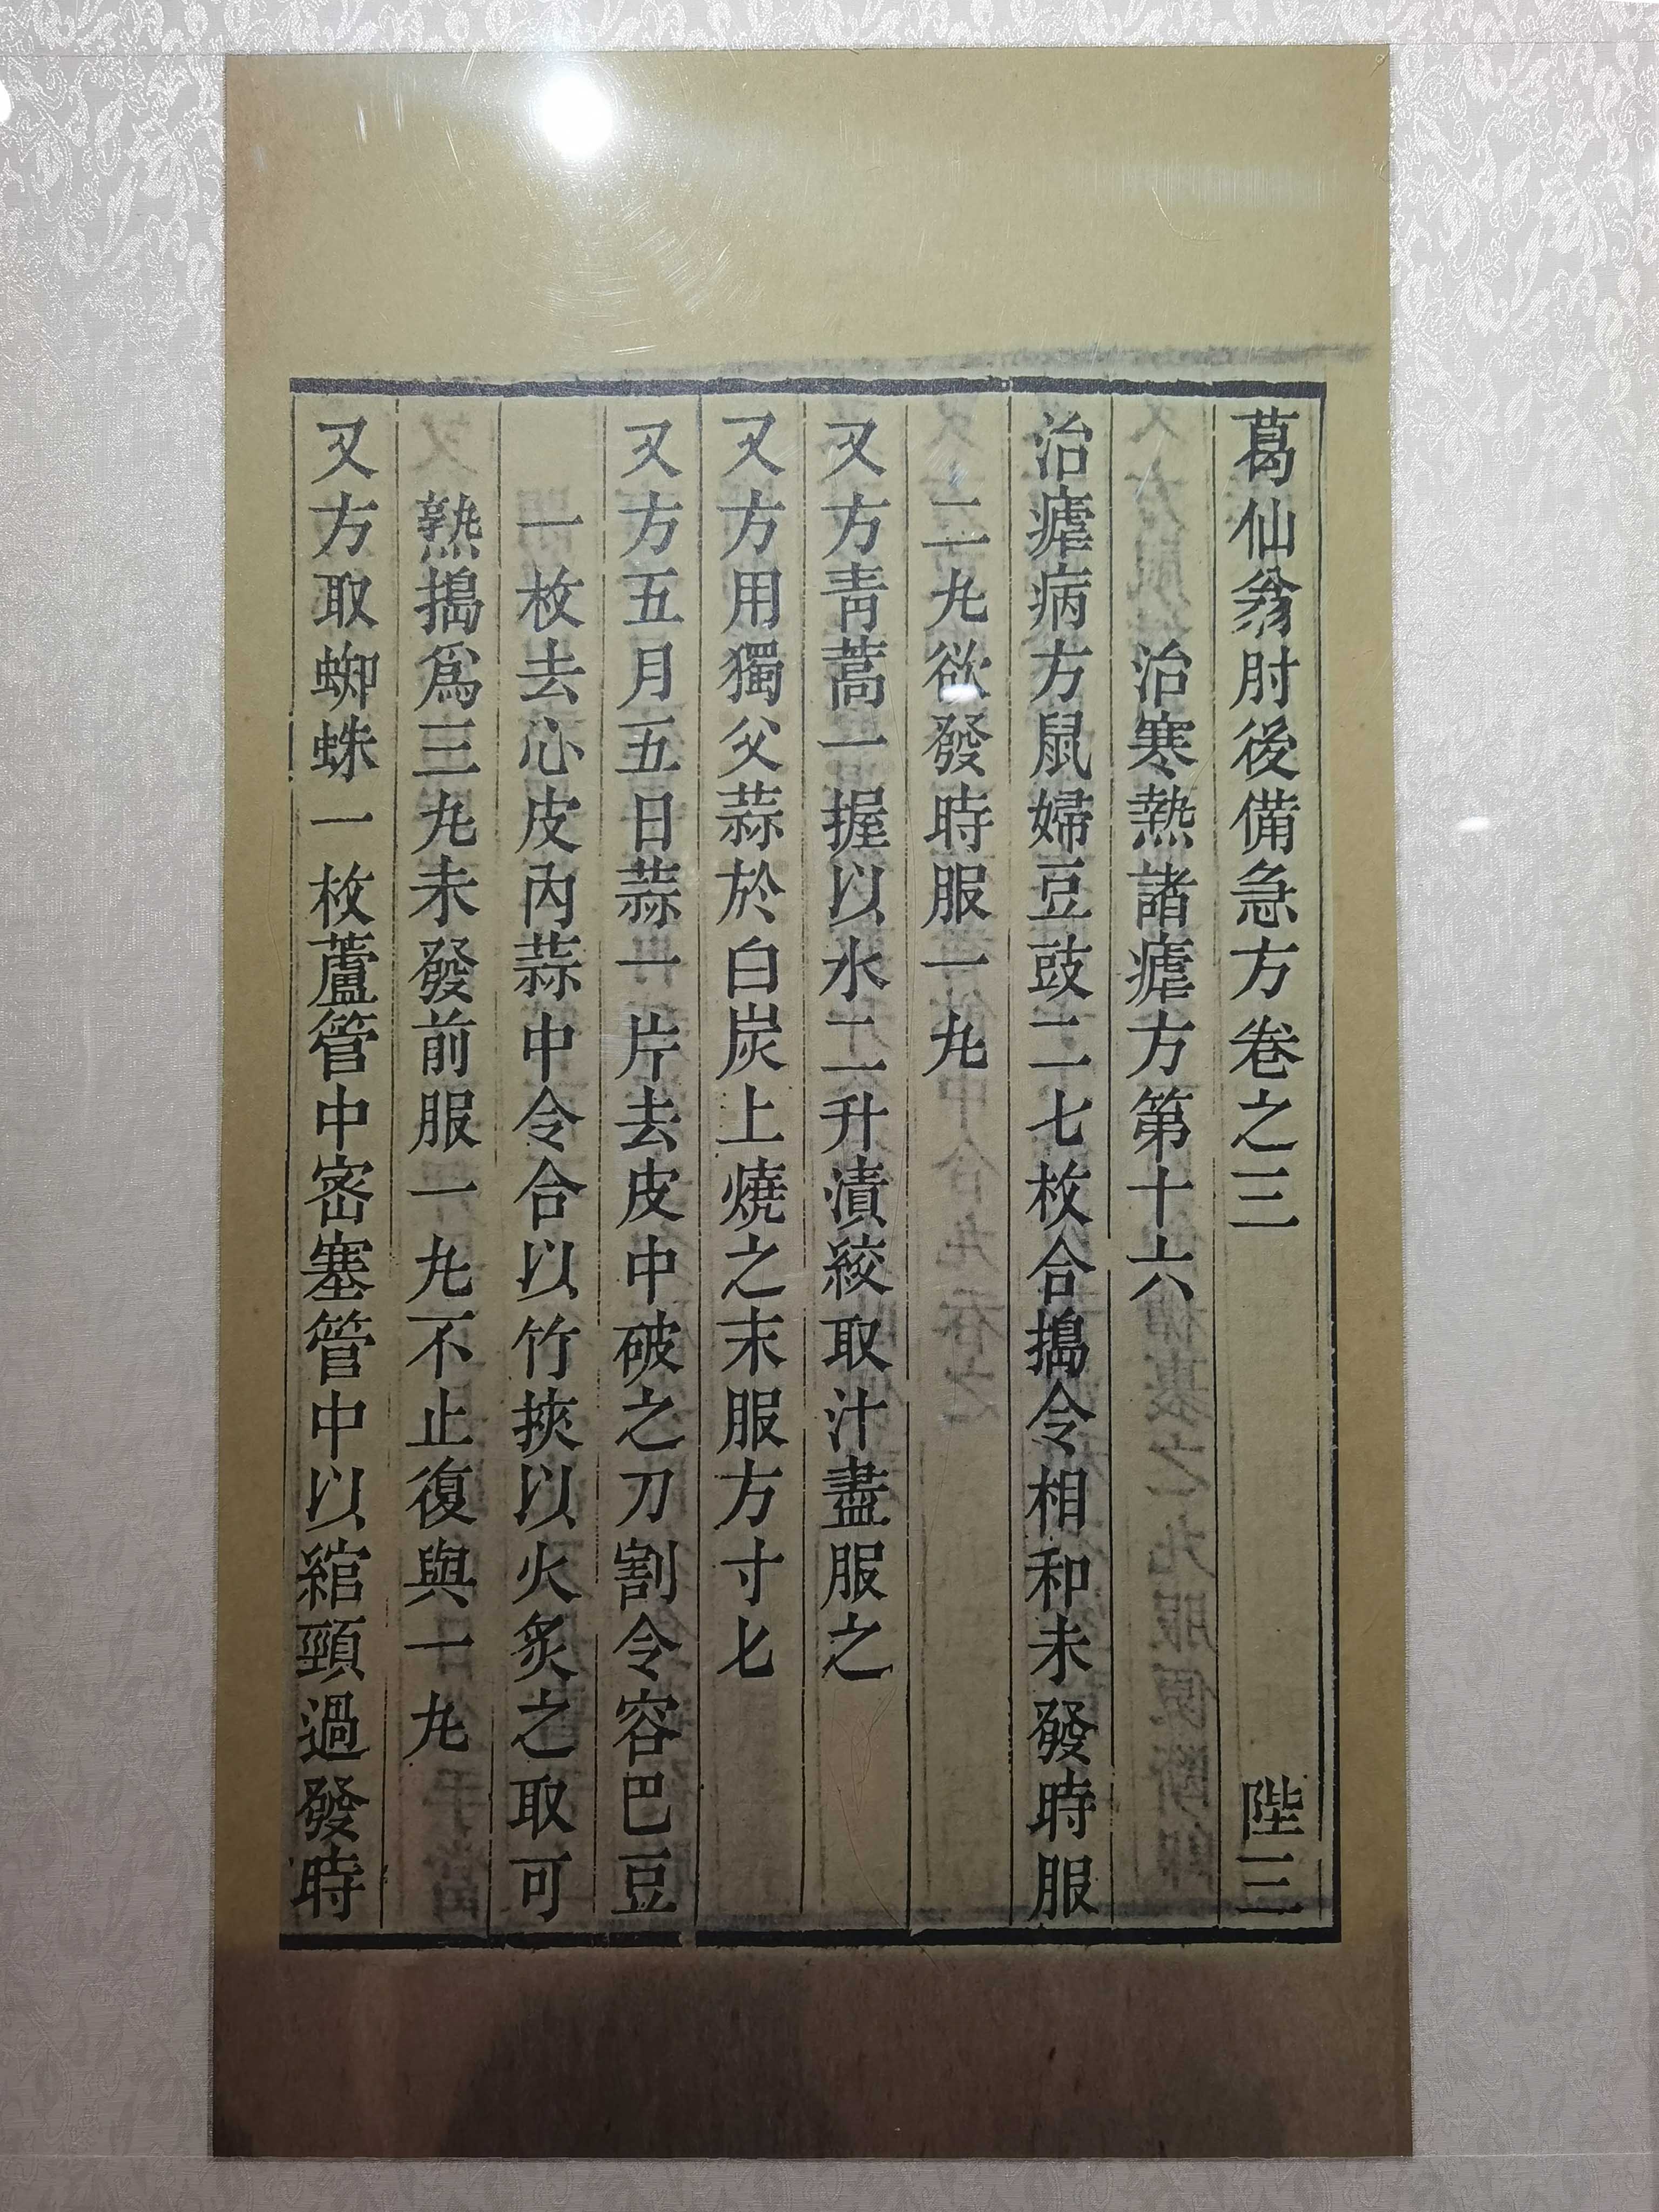 葛仙翁肘後備急方卷之三 陛三
治寒熱諸瘧方第十六
治瘧病方鼠婦豆豉二七枚合搗令相和未發時服
二丸欲發時服一丸
又方青蒿一握以水二升漬絞取汁盡服之
又方用獨父蒜於白炭上燒之末服方寸匕
又方五月五日蒜一片去皮中破之刀割令容巴豆
一枚去心皮內蒜中令合以竹挾以火炙之取可
熟搗爲三丸未發前服一丸不止復與一丸
又方取蜘蛛一枚蘆管中密塞管中以綰頸過發時